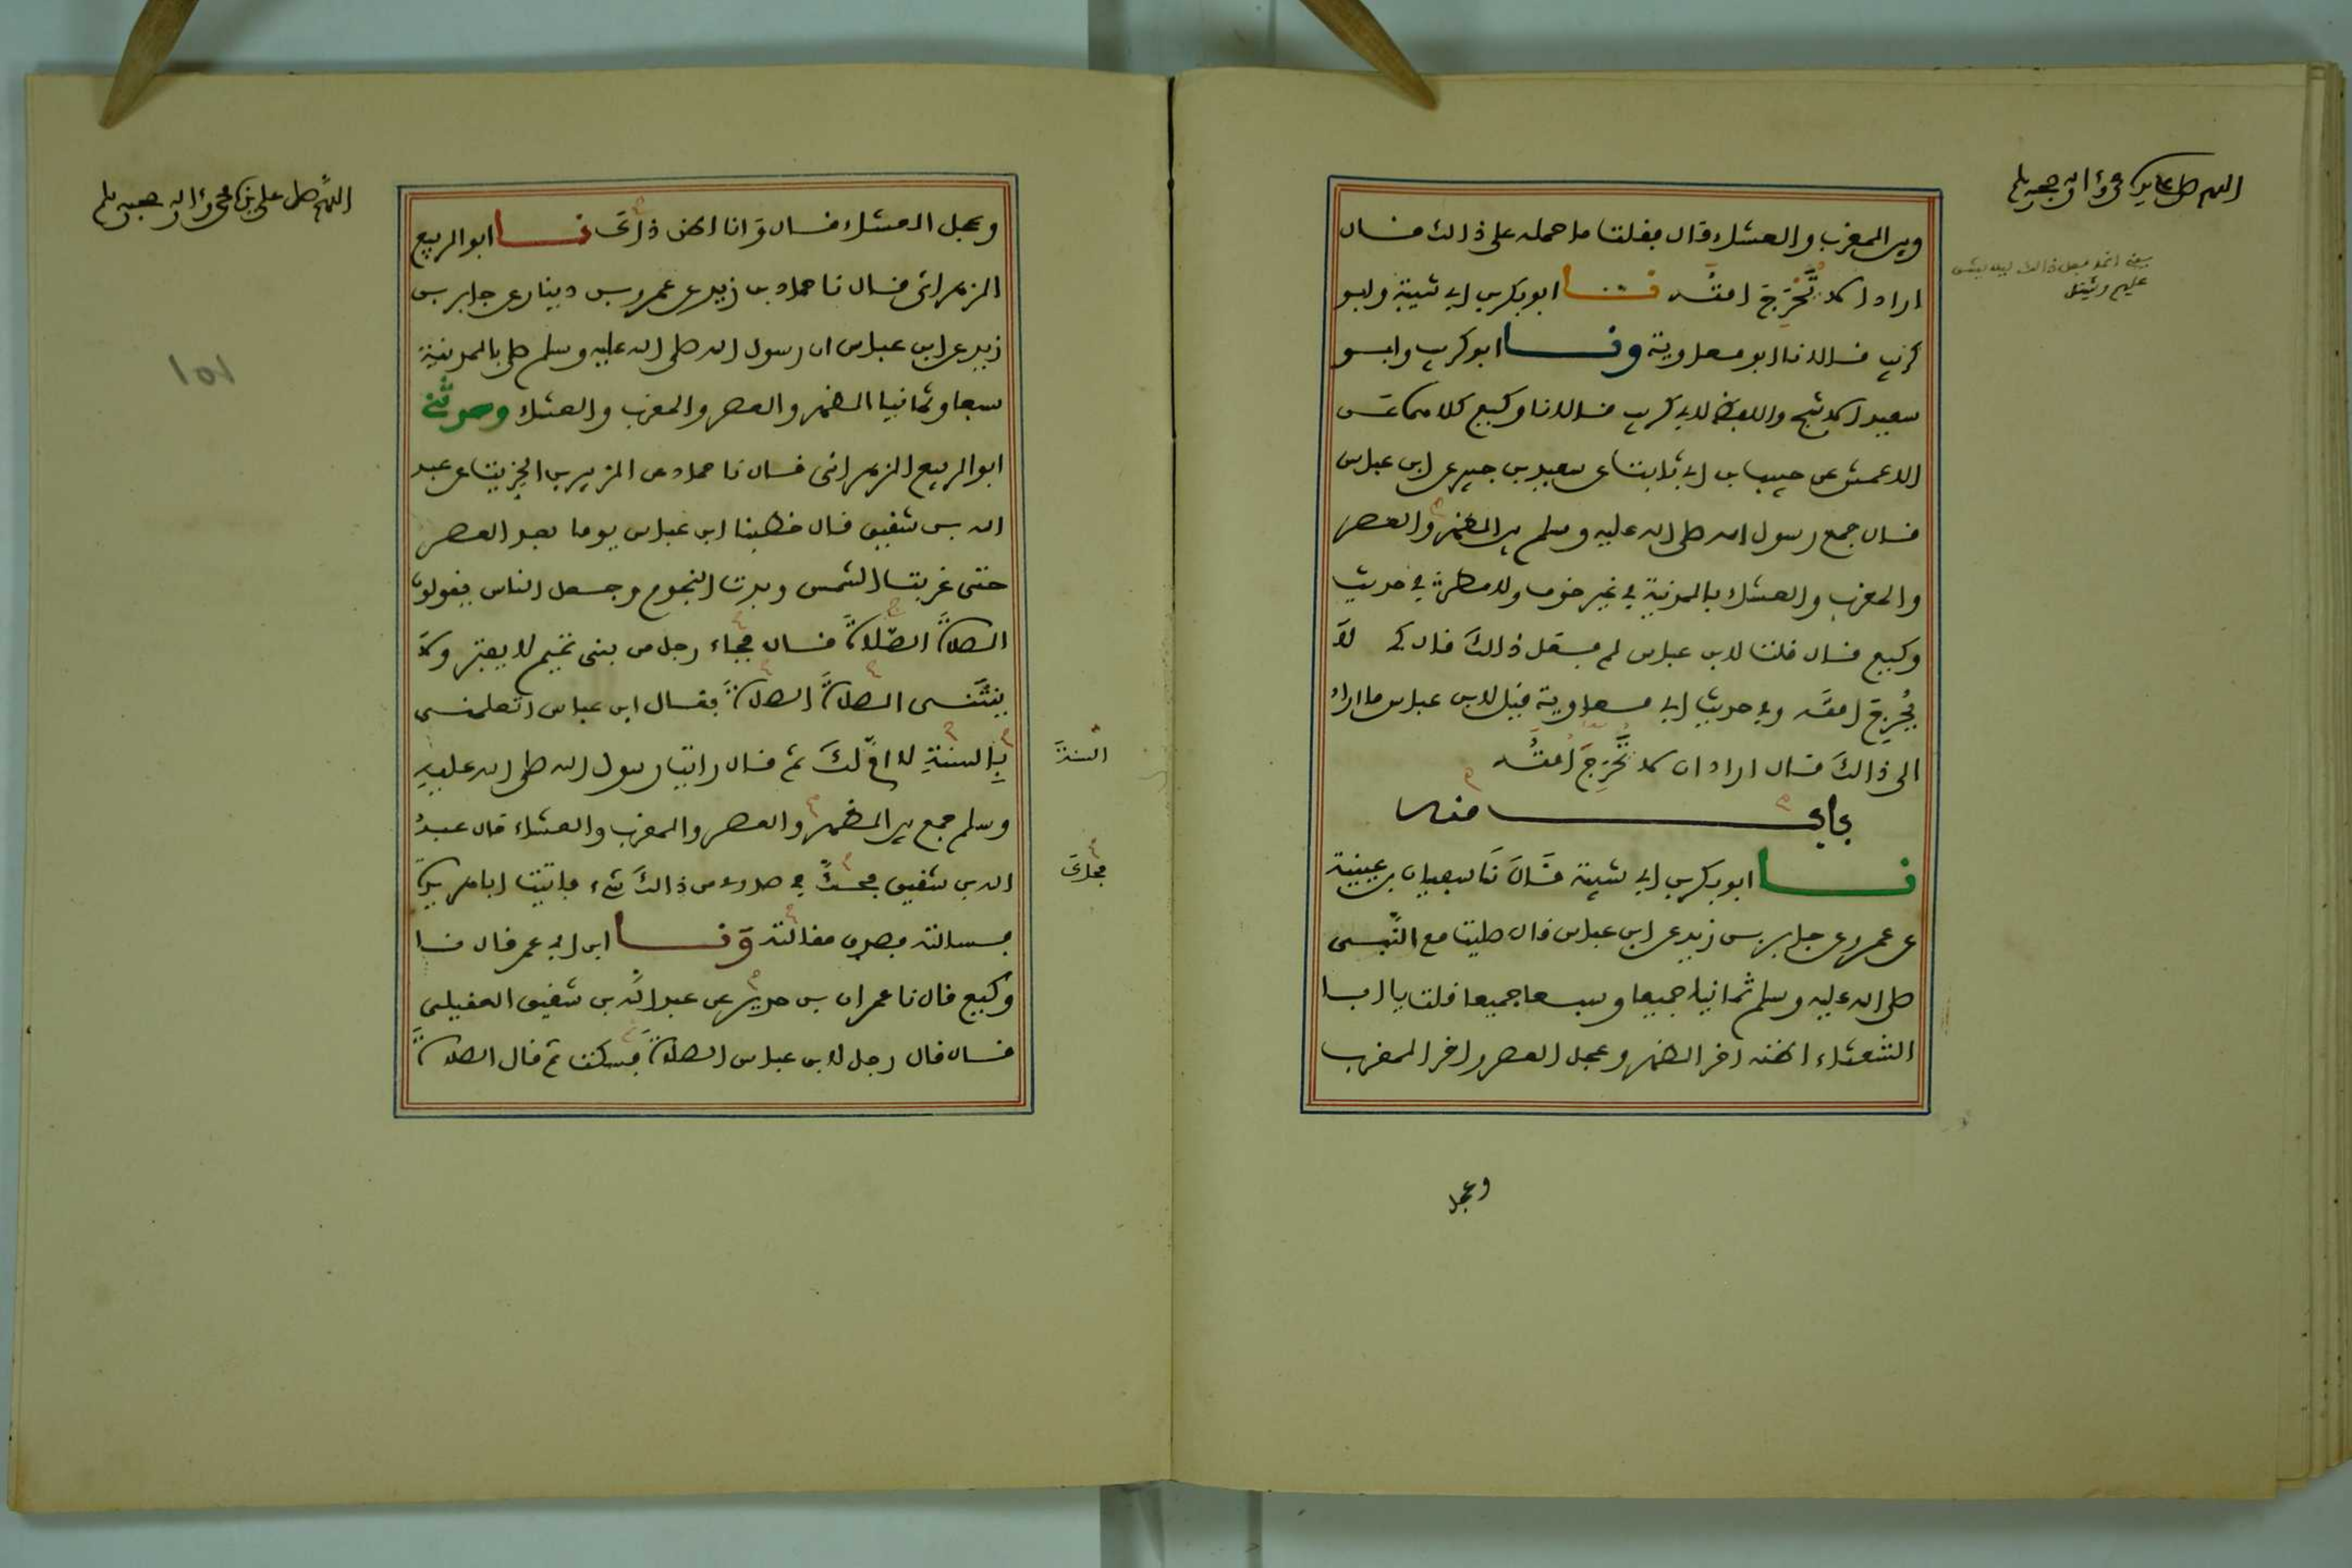 اللهم صل على نبيك محمد وءاله وصحبه وسلم
وبين المغرب والعشاء قال فقلت ما حمله على ذالك فقال
اراد الا تحرج امته نا ابو بكر بن ابي شيبة وابو
كريب قالا نا ابو معاوية ونا ابو كريب وابو
سعيد الاشج واللفظ لابي كريب قالا نا وكيع كلاهما عن
الاعمش عن حبيب بن ابي ثابت عن سعيد بن جبير عن ابن عباس
قال جمع رسول الله صلى الله عليه وسلم بين الظهر والعصر
والمغرب والعشاء بالمدينة في غير خوف ولا مطر في حديث
وكيع قال قلت لابن عباس لم فعل ذالك قال كي لا
يحرج امته وفي حديث ابي معاوية قيل لابن عباس ما اراد
الى ذالك قال اراد ان لا تحرج امته
باب منه
نا ابو بكر بن ابي شيبة قال نا سفيان بن عيينة
عن عمرو عن جابر بن زيد عن ابن عباس قال صليت مع النبي
صلى الله عليه وسلم ثمانيا جميعا وسبعا جميعا قلت يا ابا
الشعثاء اظنه اخر الظهر وعجل العصر واخر المغرب
وعجل
اللهم صل على نبيك محمد وءاله وصحبه وسلم
وعجل العشاء قال وانا اظن ذاك نا ابو الربيع
الزهراني قال نا حماد بن زيد عن عمرو بن دينار عن جابر بن
زيد عن ابن عباس ان رسول الله صلى الله عليه وسلم صلى بالمدينة
سبعا وثمانيا الظهر والعصر والمغرب والعشاء وحدثني
ابو الربيع الزهراني قال نا حماد عن الزبير بن الخريت عن عبد
الله بن شقيق قال خطبنا ابن عباس يوما بعد العصر
حتى غربت الشمس وبدت النجوم وجعل الناس يقولون
الصلاة الصلاة قال فجاء رجل من بني تميم لا يفتر ولا
ينثنى الصلاة الصلاة فقال ابن عباس اتعلمني
بالسنة لا ام لك ثم قال رايت رسول الله صلى الله عليه
السنة
وسلم جمع بين الظهر والعصر والمغرب والعشاء قال عبد
الله بن شقيق فحك في صدري من ذالك شيء فاتيت ابا هريرة
فحاك
فسالته فصدق مقالته ونا ابن ابي عمر قال نا
وكيع قال نا عمران بن حدير عن عبد الله بن شقيق العقيلي
قال قال رجل لابن عباس الصلاة فسكت ثم قال الصلاة
101